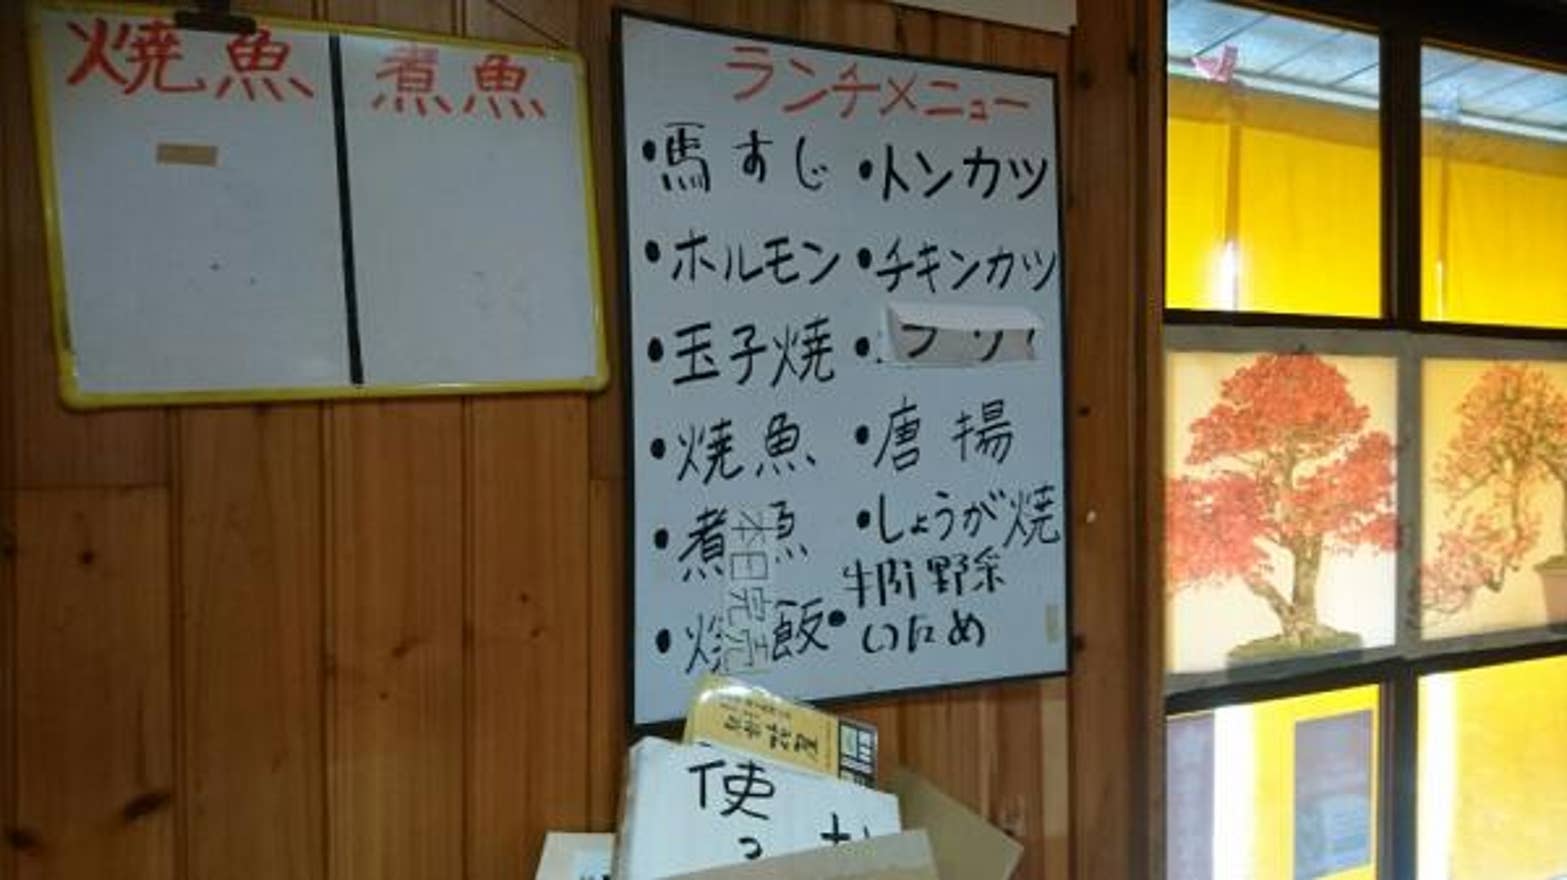 焼魚 煮魚
ランチメニュー
・馬すじ ・トンカツ
・ホルモン ・チキンカツ
・玉子焼
・焼魚 ・唐揚
・煮魚 ・しょうが焼
本日完売
・焼飯 ・牛肉野菜
いため
使